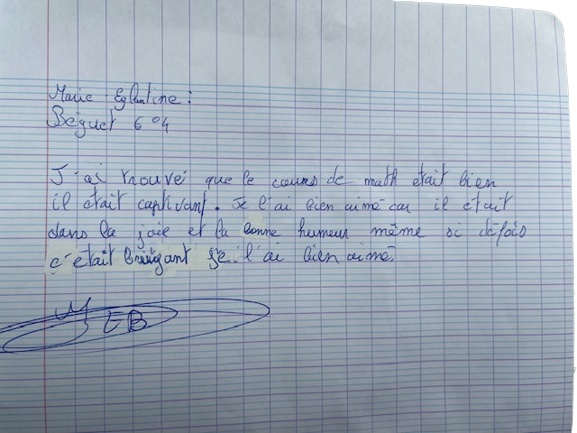 Marie-Eglantine :
Béguet 6°4
J'ai trouvé que le cours de math était bien
il était captivant. Je l'ai bien aimé car il était
dans la joie et la bonne humeur même si défois
c'était bruyant je l'ai bien aimé.
M EB